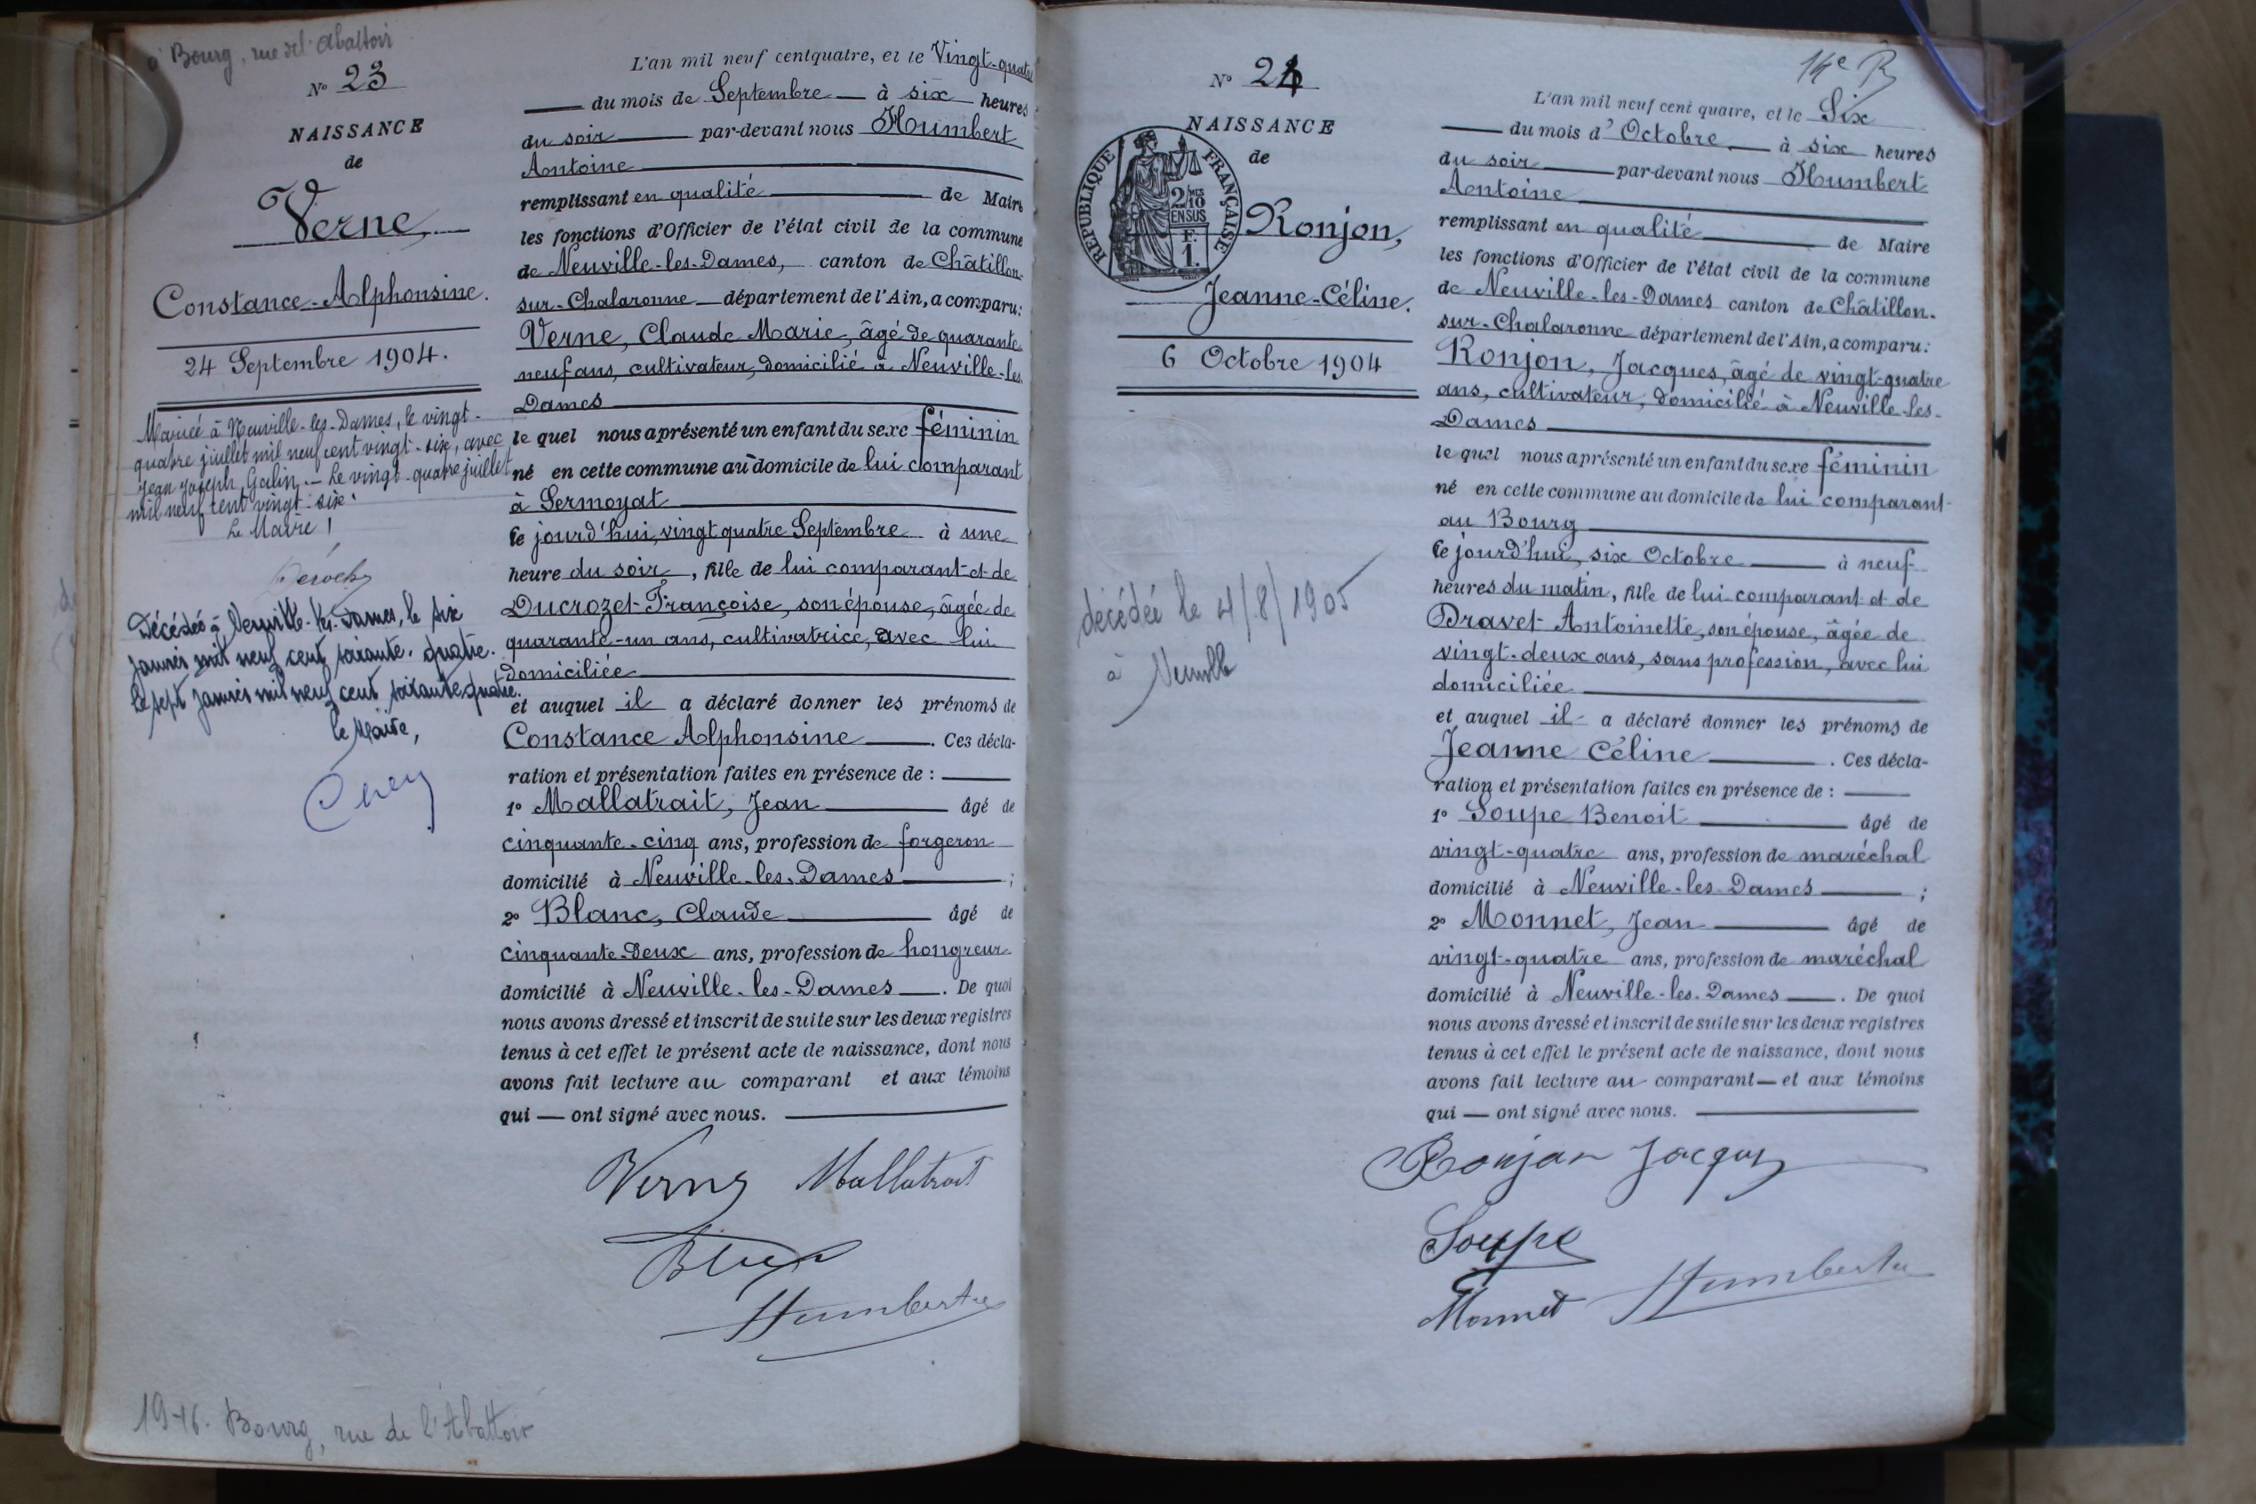 à Bourg, rue de l'Abattoir
N° 23
NAISSANCE
de
Verne
Constance-Alphonsine.
24 Septembre 1904.
Mariée à Neuville-les-Dames, le vingt-
quatre juillet mil neuf cent vingt-six, avec
Jean Joseph Galin. - Le vingt-quatre juillet
mil neuf cent vingt-six.
Le Maire !
Décédée à Neuville-les-Dames, le six
janvier mil neuf cent soixante-quatre.
Le sept janvier mil neuf cent soixante quatre.
le Maire,
L'an mil neuf cent quatre, et le Vingt-quatre
du mois de Septembre à six heures
du soir par-devant nous Humbert
Antoine
remplissant en qualité de Maire
les fonctions d'Officier de l'état civil de la commune
de Neuville-les-Dames, canton de Châtillon-
sur-Chalaronne département de l'Ain, a comparu:
Verne, Claude Marie, âgé de quarante
neuf ans, cultivateur, domicilié à Neuville-les
Dames
le quel nous a présenté un enfant du sexe féminin
né en cette commune au domicile de lui comparant
à Sermoyat
ce jourd'hui, vingt quatre Septembre à une
heure du soir, fille de lui comparant et de
Ducrozet Françoise, son épouse, âgée de
quarante-un ans, cultivatrice, avec lui
domiciliée
et auquel il a déclaré donner les prénoms de
Constance Alphonsine. Ces décla-
ration et présentation faites en présence de :
1° Mallatrait, Jean âgé de
cinquante-cinq ans, profession de forgeron
domicilié à Neuville-les-Dames ;
2° Blanc, Claude âgé de
cinquante-deux ans, profession de hongreur
domicilié à Neuville-les-Dames. De quoi
nous avons dressé et inscrit de suite sur les deux registres
tenus à cet effet le présent acte de naissance, dont nous
avons fait lecture au comparant et aux témoins
qui — ont signé avec nous.
Verne Mallatrait
Blanc
Humbert
Bourg, rue de l'Abattoir
14e B
N° 24
NAISSANCE
de
RÉPUBLIQUE FRANÇAISE
2/10
EN SUS
F.
1.
Ronjon,
Jeanne-Céline.
6 Octobre 1904
décédée le 4/8/1905
à Neuville
L'an mil neuf cent quatre, et le Six
du mois d'Octobre à six heures
du soir par-devant nous Humbert
Antoine
remplissant en qualité de Maire
les fonctions d'Officier de l'état civil de la commune
de Neuville-les-Dames canton de Châtillon-
sur-Chalaronne département de l'Ain, a comparu:
Ronjon, Jacques, âgé de vingt-quatre
ans, cultivateur, domicilié à Neuville-les-
Dames
le quel nous a présenté un enfant du sexe féminin
né en cette commune au domicile de lui comparant
au Bourg
ce jourd'hui, six Octobre à neuf
heures du matin, fille de lui comparant et de
Dravet Antoinette, son épouse, âgée de
vingt-deux ans, sans profession, avec lui
domiciliée
et auquel il a déclaré donner les prénoms de
Jeanne Céline. Ces décla-
ration et présentation faites en présence de :
1° Soupe Benoit âgé de
vingt-quatre ans, profession de maréchal
domicilié à Neuville-les-Dames ;
2° Monnet, Jean âgé de
vingt-quatre ans, profession de maréchal
domicilié à Neuville-les-Dames. De quoi
nous avons dressé et inscrit de suite sur les deux registres
tenus à cet effet le présent acte de naissance, dont nous
avons fait lecture au comparant — et aux témoins
qui — ont signé avec nous.
Ronjon Jacques
Soupe
Monnet Humbert